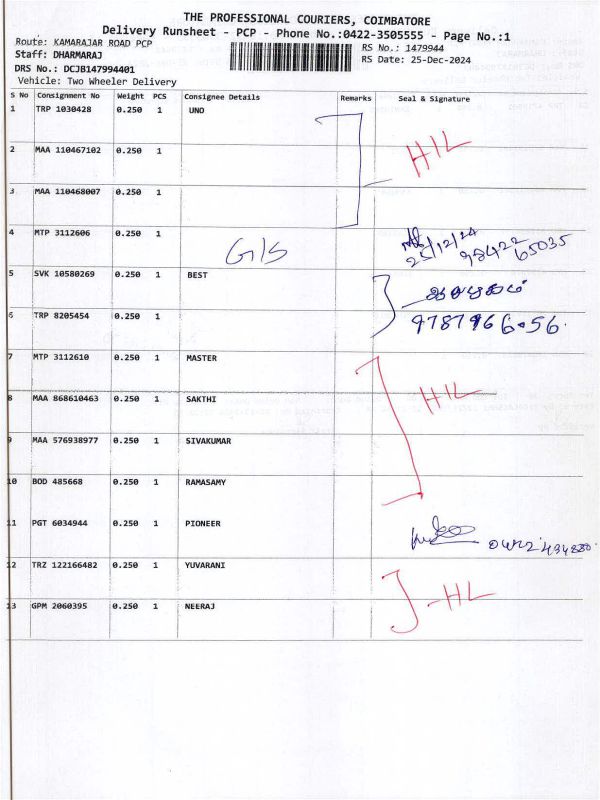 THE PROFESSIONAL COURIERS, COIMBATORE
Delivery Runsheet - PCP - Phone No.:0422-3505555 - Page No.:1
Route: KAMARAJAR ROAD PCP
RS No.: 1479944
Staff: DHARMARAJ
RS Date: 25-Dec-2024
DRS No.: DCJB147994401
Vehicle: Two Wheeler Delivery
S No Consignment No Weight PCS Consignee Details Remarks Seal & Signature
1 TRP 1030428 0.250 1 UNO
H/L
2 MAA 110467102 0.250 1
3 MAA 110468007 0.250 1
4 MTP 3112606 0.250 1
G/S 25/12/24
98422 65035
5 SVK 10580269 0.250 1 BEST
6 TRP 8205454 0.250 1
7 MTP 3112610 0.250 1 MASTER
8 MAA 868610463 0.250 1 SAKTHI H/L
9 MAA 576938977 0.250 1 SIVAKUMAR
10 BOD 485668 0.250 1 RAMASAMY
11 PGT 6034944 0.250 1 PIONEER
12 TRZ 122166482 0.250 1 YUVARANI
13 GPM 2060395 0.250 1 NEERAJ - HL